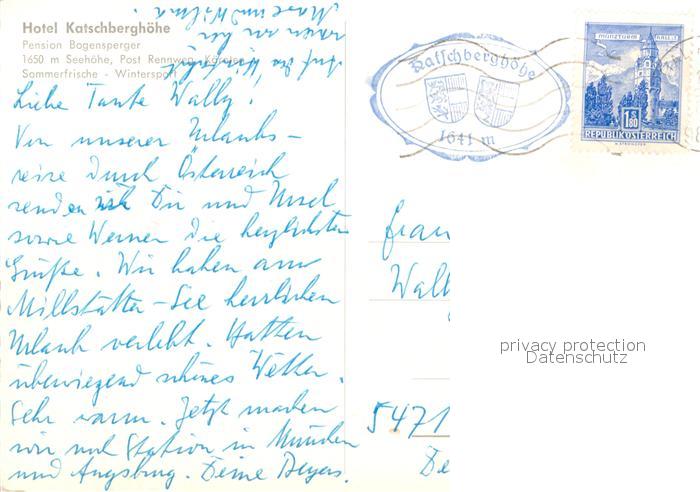 Hotel Katschberghöhe
Pension Bogensperger
1650 m Seehöhe, Post Rennweg, Kärnten
Sommerfrische - Wintersport
Liebe Tante Wally,
Von unserer Urlaubs-
reise durch Österreich
senden Dir und Ursel
sowie Werner die herzlichsten
Grüße. Wir haben am
Millstätter-See herrlichen
Urlaub verlebt. Hatten
überwiegend schönes Wetter.
Sehr warm. Jetzt machen
wir noch Station in München
und Augsburg. Deine
Auf der
waren wir
Katschberghöhe
1641 m
MÜNZTURM
HALL I. T.
1.80
REPUBLIK ÖSTERREICH
Frau
Wall
5471
privacy protection
Datenschutz